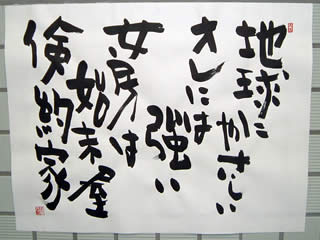 地球にやさしい
オレには
強い
女房は
始末屋
倹約家